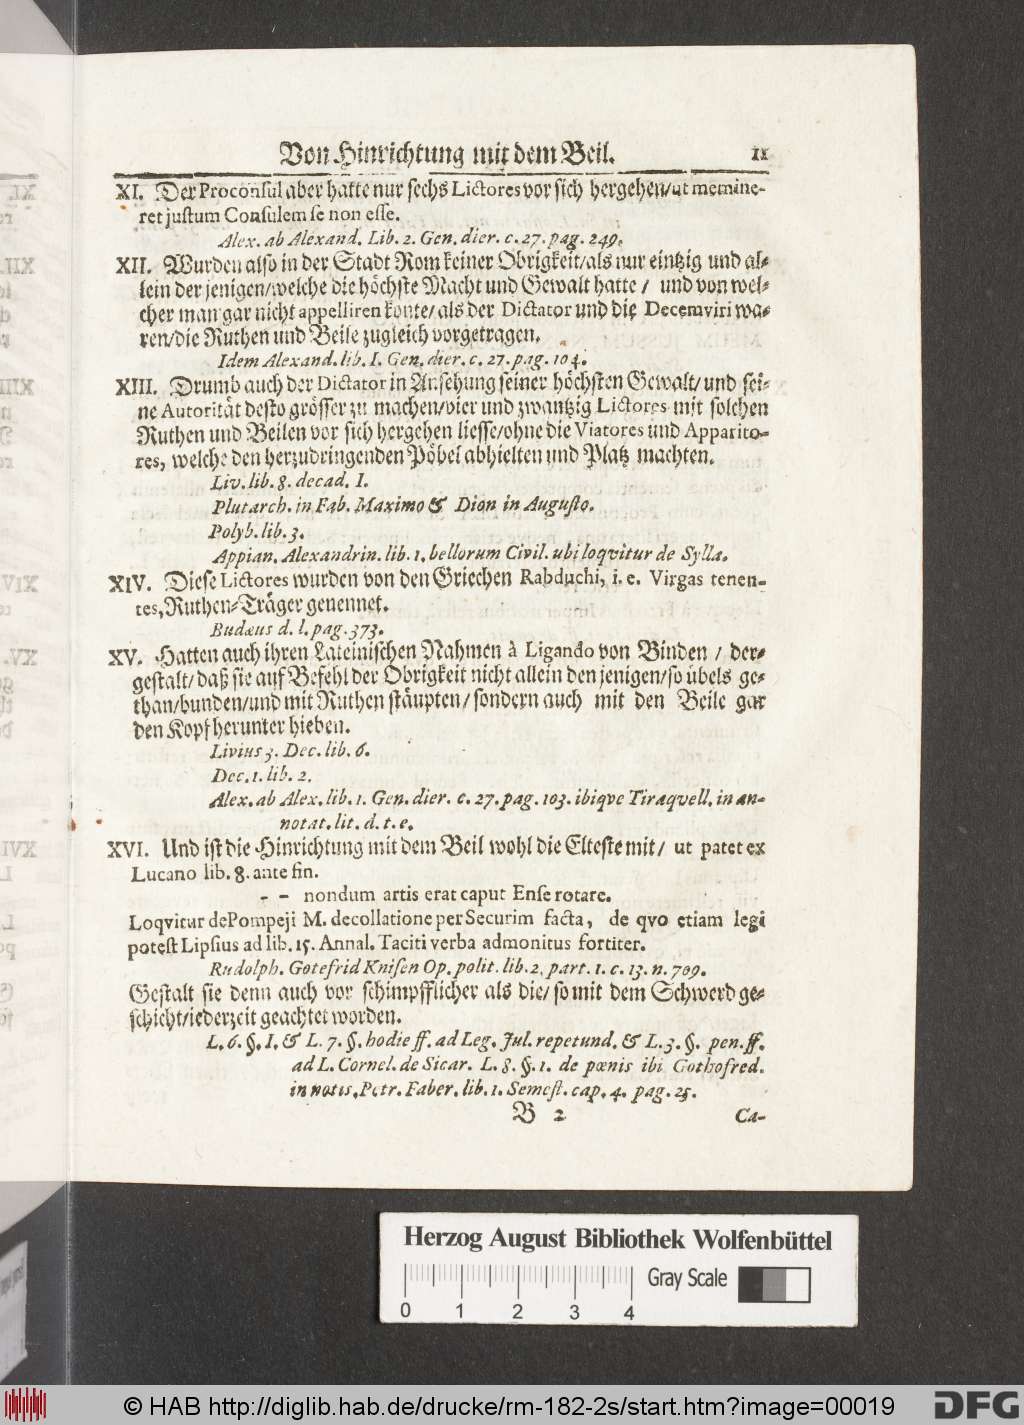 Von Hinrichtung mit dem Beil. 11
XI. Der Proconsul aber hatte nur sechs Lictores vor sich hergehen/ut memine-
ret justum Consulem se non esse.
Alex. ab Alexand. Lib. 2. Gen. dier. c. 27. pag. 249.
XII. Wurden also in der Stadt Rom keiner Obrigkeit/als nur eintzig und al-
lein der jenigen/welche die höchste Macht und Gewalt hatte / und von wel-
cher man gar nicht appelliren konte/als der Dictator und die Decemviri wa-
ren/die Ruthen und Beile zugleich vorgetragen.
Idem Alexand. lib. I. Gen. dier. c. 27. pag. 104.
XIII. Drumb auch der Dictator in Ansehung seiner höchsten Gewalt/und sei-
ne Autorität desto grösser zu machen/vier und zwantzig Lictores mit solchen
Ruthen und Beilen vor sich hergehen liesse/ohne die Viatores und Apparito-
res, welche den herzudringenden Pöbel abhielten und Platz machten.
Liv. lib. 8. decad. I.
Plutarch. in Fab. Maximo & Dion in Augusto.
Polyb. lib. 3.
Appian. Alexandrin. lib. 1. bellorum Civil. ubi loqvitur de Sylla.
XIV. Diese Lictores wurden von den Griechen Rabduchi, i. e. Virgas tenen-
tes, Ruthen-Träger genennet.
Budæus d. l. pag. 373.
XV. Hatten auch ihren Lateinischen Nahmen à Ligando von Binden / der-
gestalt/daß sie auf Befehl der Obrigkeit nicht allein den jenigen/so übels ge-
than/bunden/und mit Ruthen stäupten/sondern auch mit den Beile gar
den Kopf herunter hieben.
Livius 3. Dec. lib. 6.
Dec. 1. lib. 2.
Alex. ab Alex. lib. 1. Gen. dier. c. 27. pag. 103. ibiqve Tiraqvell. in an-
notat. lit. d. t. e.
XVI. Und ist die Hinrichtung mit dem Beil wohl die Elteste mit/ ut patet ex
Lucano lib. 8. ante fin.
- - nondum artis erat caput Ense rotare.
Loqvitur de Pompeji M. decollatione per Securim facta, de qvo etiam legi
potest Lipsius ad lib. 15. Annal. Taciti verba admonitus fortiter.
Rudolph. Gotefrid Knisen Op. polit. lib. 2. part. 1. c. 13. n. 709.
Gestalt sie denn auch vor schimpfflicher als die/so mit dem Schwerd ge-
schicht/iederzeit geachtet worden.
L. 6. §. I. & L. 7. §. hodie ff. ad Leg. Jul. repetund. & L. 3. §. pen. ff.
ad L. Cornel. de Sicar. L. 8. §. 1. de pœnis ibi Gothofred.
in notis. Petr. Faber. lib. 1. Semest. cap. 4. pag. 25.
B 2 Ca-
Herzog August Bibliothek Wolfenbüttel
Gray Scale
0 1 2 3 4
© HAB http://diglib.hab.de/drucke/rm-182-2s/start.htm?image=00019
DFG